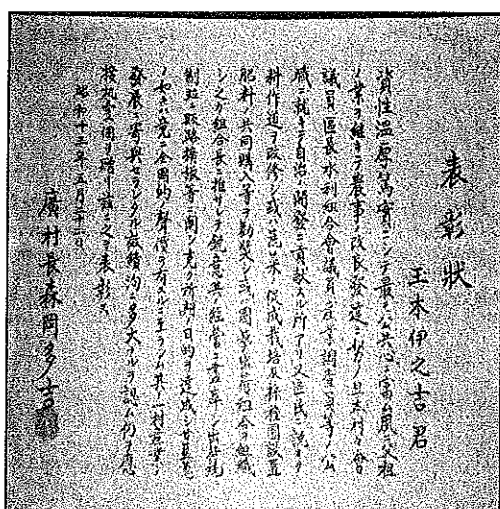 表彰状
玉木伊之吉君
資性温厚篤實ニシテ最モ公共心ニ富ム夙ニ父祖
ノ業ヲ継キテ農事ノ改良發達ニ努メ村會
議員區長水利組合會議員産業調査員等ノ公
職ニ就キテ自治ノ開發ニ貢献スル所アリ又區民ニ諮リ
耕作道ノ改修或ハ苗木ノ養成栽培及新種園設置
肥料ノ共同購入等ヲ勧奨シ或ハ園藝出荷組合ヲ組織
シ之カ組合長ニ推サレテ鋭意其ノ經營ニ出荷統
制並ニ販路擴張等ニ關シ克ク所期ノ目的ヲ達成シ
ノ如キハ竟ニ全國的聲價ヲ有スルニ至ラシム村産業ノ
發展ニ寄與セラレタル功績洵ニ多大ナルヲ認ム仍テ
壹個ヲ贈リ茲ニ之ヲ表彰ス
昭和十三年五月三十一日
廣村長森岡多吉